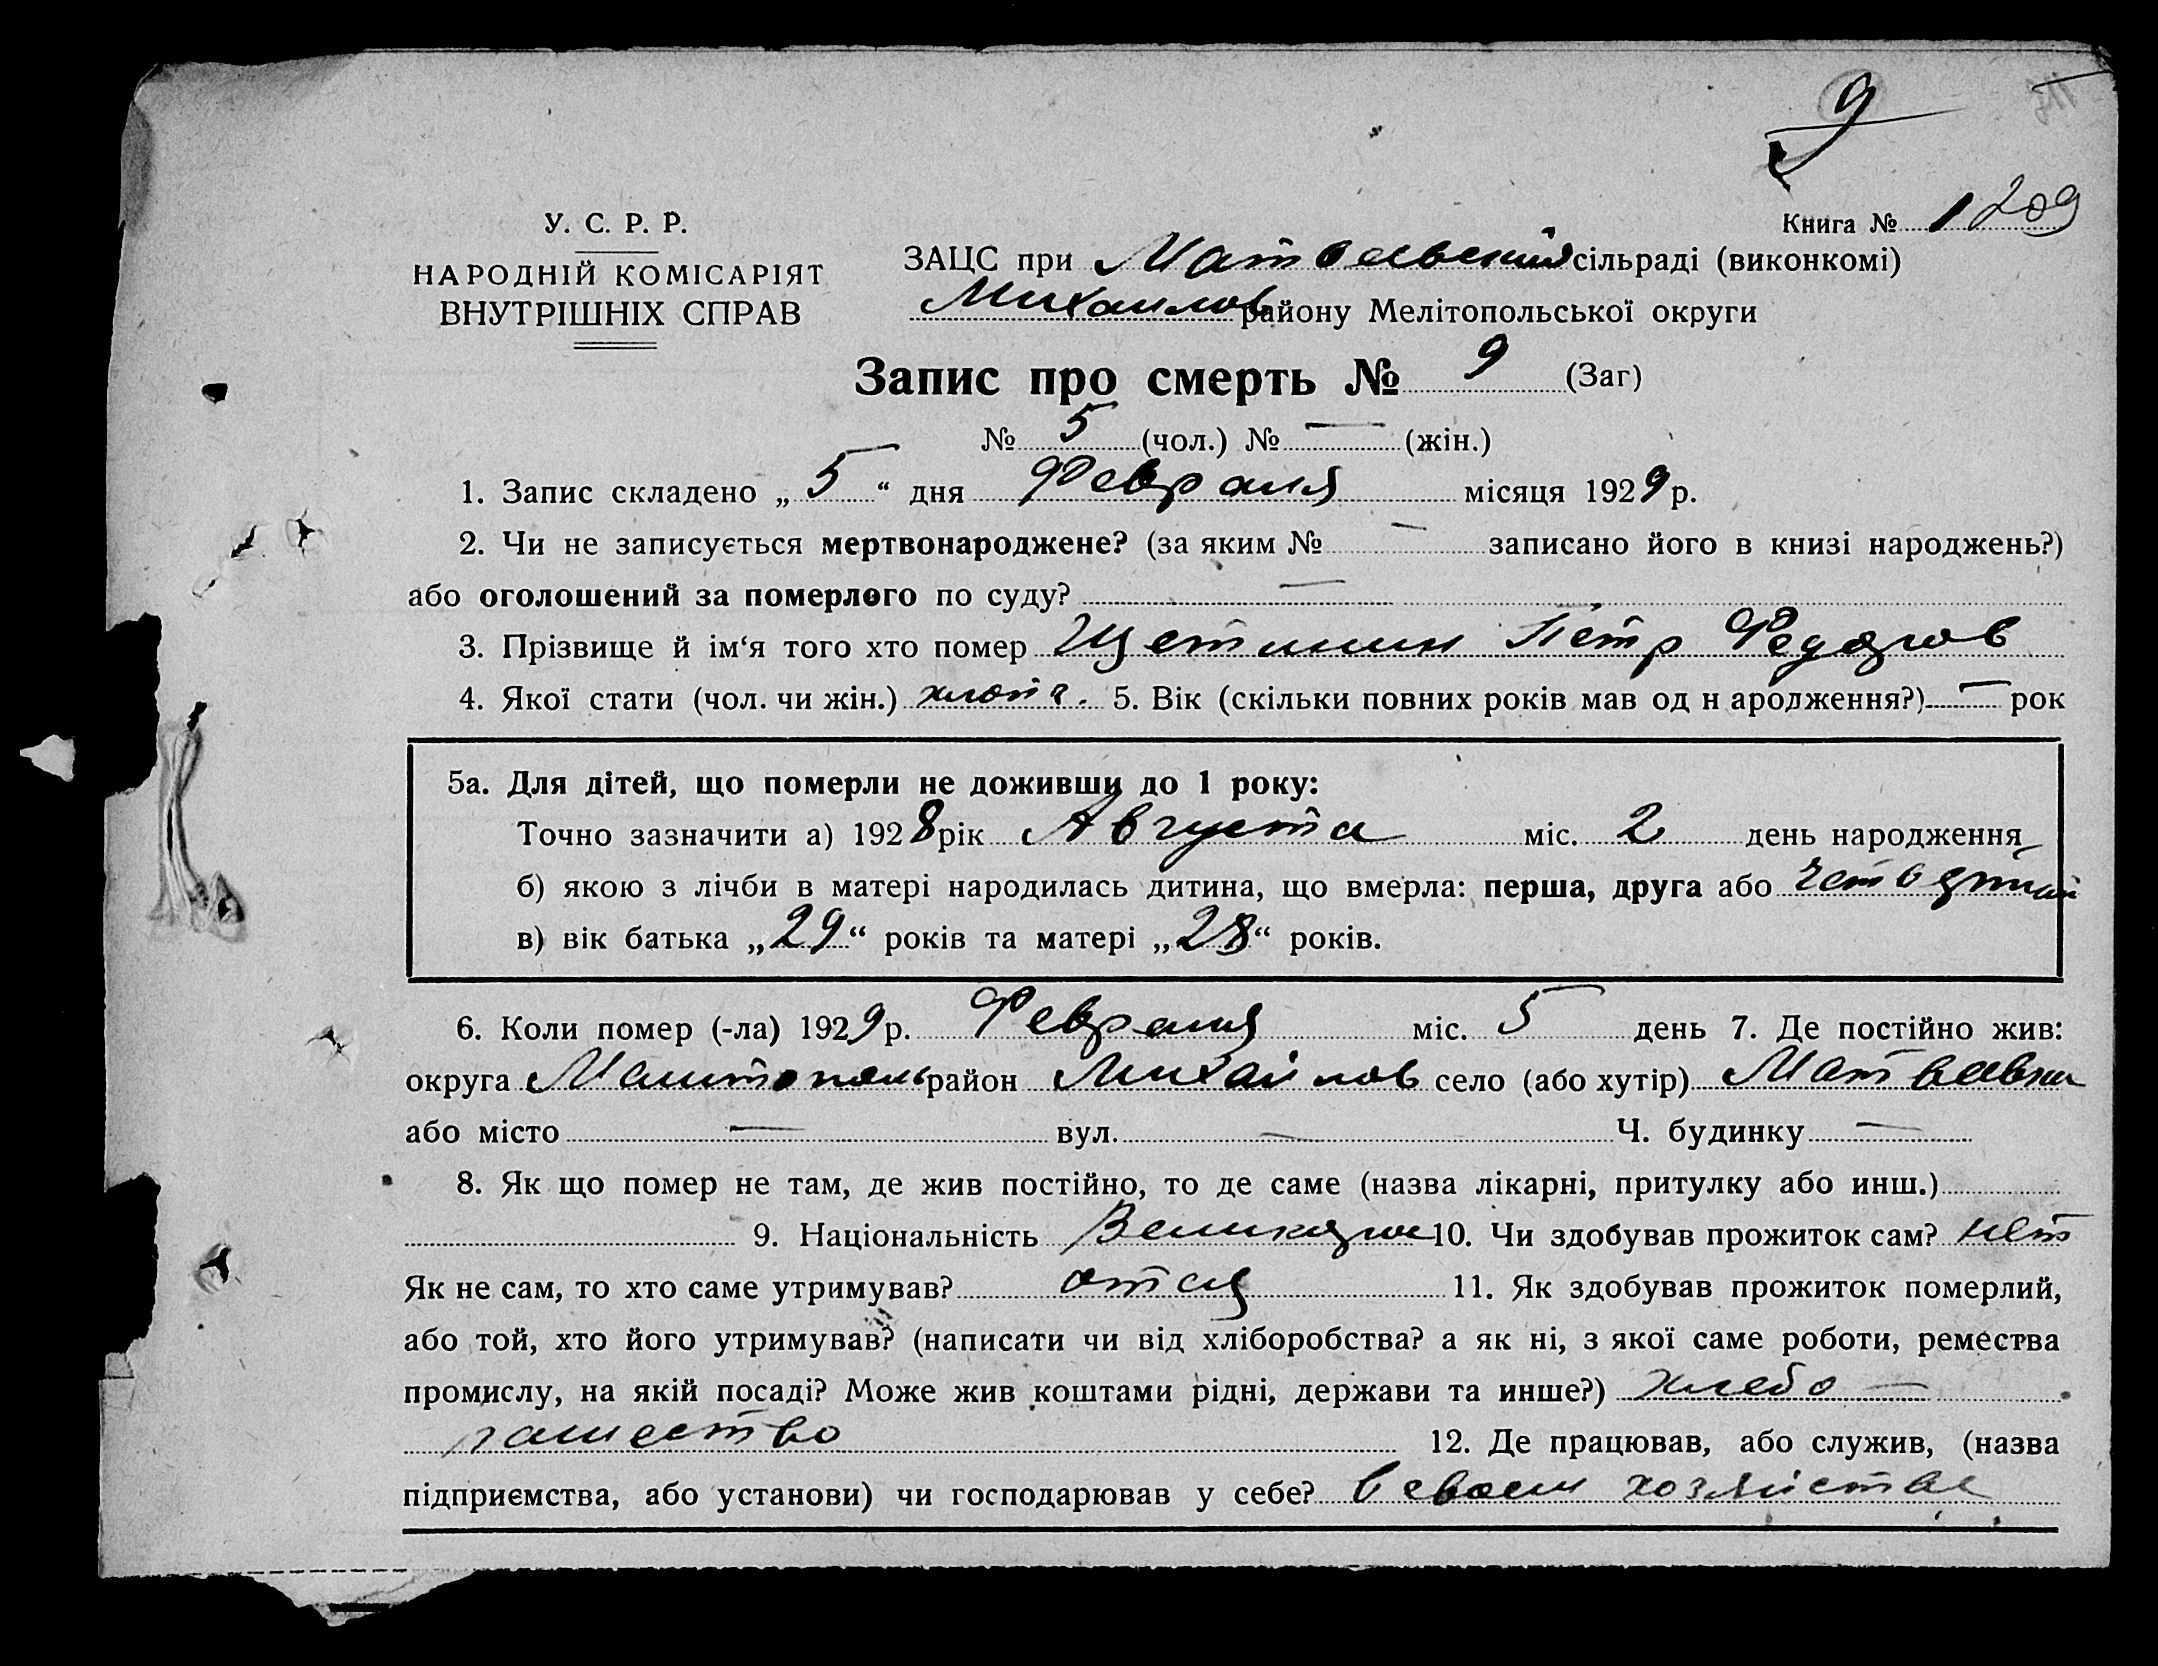 9
У. С. Р. Р.
Книга № 1 209
НАРОДНІЙ КОМІСАРІЯТ
ВНУТРІШНІХ СПРАВ
ЗАЦС при Матвеевский сільраді (виконкомі)
Михайлов району Мелітопольської округи
Запис про смерть № 9 (Заг)
№ 5 (чол.) № — (жін.)
1. Запис складено „ 5 “ дня Февраля місяця 1929 р.
2. Чи не записується мертвонароджене? (за яким № — записано його в книзі народжень?)
або оголошений за померлого по суду? —
3. Прізвище й ім‘я того хто помер Щетинин Петр Федоров
4. Якої стати (чол. чи жін.) 5. Вік (скільки повних років мав од н ародження?) — рок
5а. Для дітей, що померли не доживши до 1 року:
Точно зазначити а) 1928 рік Августа міс. 2 день народження
б) якою з лічби в матері народилась дитина, що вмерла: перша, друга або
в) вік батька „29“ років та матері „28“ років.
6. Коли помер (-ла) 1929 р. Февраля міс. 5 день 7. Де постійно жив:
округа район Михайлов село (або хутір)
або місто — вул. — Ч. будинку —
8. Як що помер не там, де жив постійно, то де саме (назва лікарні, притулку або инш.)
9. Національність Великорос 10. Чи здобував прожиток сам? нет
Як не сам, то хто саме утримував? отец 11. Як здобував прожиток померлий,
або той, хто його утримував? (написати чи від хліборобства? а як ні, з якої саме роботи, ремества
промислу, на якій посаді? Може жив коштами рідні, держави та инше?) хлебо —
пашество 12. Де працював, або служив, (назва
підприємства, або установи) чи господарював у себе? в своем хозяйстве